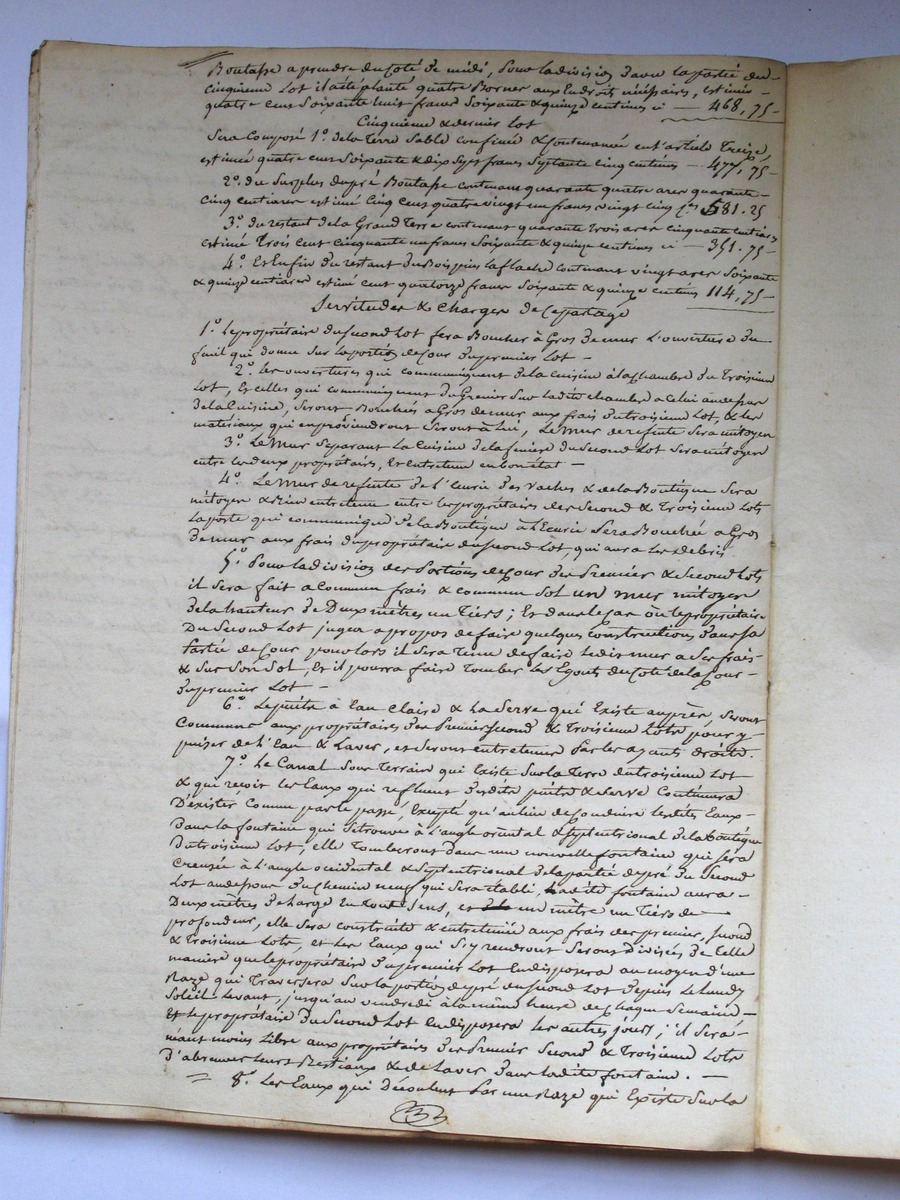 Boutasse a prendre du Coté de midi, Pour la division d'avec la partie du
cinquieme Lot il a été planté quatre Bornes aux Endroits nécessaires, estimés
quatre cens Soixante huit francs Soixante & quinze centimes ci — 468, 75 -
Cinquieme & dernier Lot
Sera Composé 1.º de la Terre Sable confinée & contenancée en l'article Treize,
estimée quatre cens Soixante & dix Sept francs Septante Cinq centimes — 477, 75 -
2.º du Surplus du pré Boutasse contenant quarante quatre ares quarante
Cinq Centiares estimé Cinq Cens quatre vingt un francs vingt Cinq C.mes 581. 25
3.º du restant de la Grand Terre contenant quarante Trois ares cinquante centiares
estimé Trois Cent Cinquante un francs Soixante & quinze centimes ci — 351. 75 -
4.º Et Enfin du restant du Bois pins laflache contenant vingt ares Soixante
& quinze centiares estimé cent quatorze francs Soixante & quinze centimes 114, 75 -
Servitudes & Charges de Ce partage
1.º Le propriétaire du Second Lot fera Boucher à Gros de mur L'ouverture du
fenil qui donne Sur la portion de Cour du premier Lot —
2.º Les ouvertures qui communiquent de la cuisine à la chambre du Troisieme
Lot, Et celles qui communiquent du Grenier Sur ladite chambre a Celui au dessus
de la Cuisine, Seront Bouchées a Gros de mur aux frais du troisieme Lot, & les
matériaux qui en proviendront Seront à Lui, Le Mur de refente Sera mitoyen
3.º Le Mur Separant La Cuisine de la feniere du Second Lot Sera mitoyen
entre les deux propriétaires, Et entretenu en bon état —
4.º Le Mur de refente de l'Ecurie des Vaches & de la Boutique Sera
mitoyen & Bien entretenu entre les propriétaires des Second & Troisieme Lots
La porte qui communique de la Boutique à l'Ecurie Sera Bouchée a Gros
de mur aux frais du propriétaire du Second Lot, qui aura Les debris.
5.º Pour la division des Portions de Cour des Premier & Second Lots
il Sera fait a Commun frais & commun Sol un mur mitoyen
de la hauteur de Deux mètres un Tiers; Et dans le Cas où le propriétaire
Du Second Lot jugea a propos de faire quelques constructions dans Sa
Partie de Cour pour lors il Sera Tenu de faire Ledit mur a Ses frais
& Sur Son Sol, Et il pourra faire Tomber les Egouts du Coté de la Cour
du premier Lot —
6.º Le puits à Eau Claire & La Serve qui Existe auprès, Seront
Communs aux propriétaires des Premier Second & Troisieme Lots pour y
puiser de L'Eau & Laver, et Seront entretenus Par les ayants droits.
7.º Le Canal Sous Terrain qui Existe Sur la Terre du troisieme Lot
& qui reçoit les Eaux qui refluent desdits puits & Serve Continuera
D'exister Comme par le passé, Excepté qu'au lieu de Conduire lesdites Eaux
Dans la fontaine qui Se trouve à L'angle oriental & Septentrional de la Boutique
du troisieme Lot, elle Tomberont dans une nouvelle fontaine qui Sera
Creusée à L'angle occidental & Septentrional de la partie de pré du Second
Lot au dessous du Chemin neuf qui Sera établi, Ladite fontaine aura
Deux mètres de large En tout Sens, et un mètre un Tiers de
profondeur, elle Sera construite & entretenue aux frais des premier, Second
& Troisieme Lots, et Les Eaux qui S'y rendront Seront Divisées de Telle
maniere que le propriétaire du premier Lot En disposera au moyen d'une
Raze qui Traversera Sur la portion de pré du Second Lot depuis Le Lundy
Soleil Levant, jusqu'au vendredi à la même heure de chaque Semaine
Et le propriétaire Du Second Lot En disposera les autres jours, il Sera
néant moins Libre aux propriétaires des Premier Second & Troisieme Lots
d'abreuver Leurs Bestiaux & de Laver dans ladite fontaine. —
8.º Les Eaux qui Découlent Par une Raze qui Existe Sur la